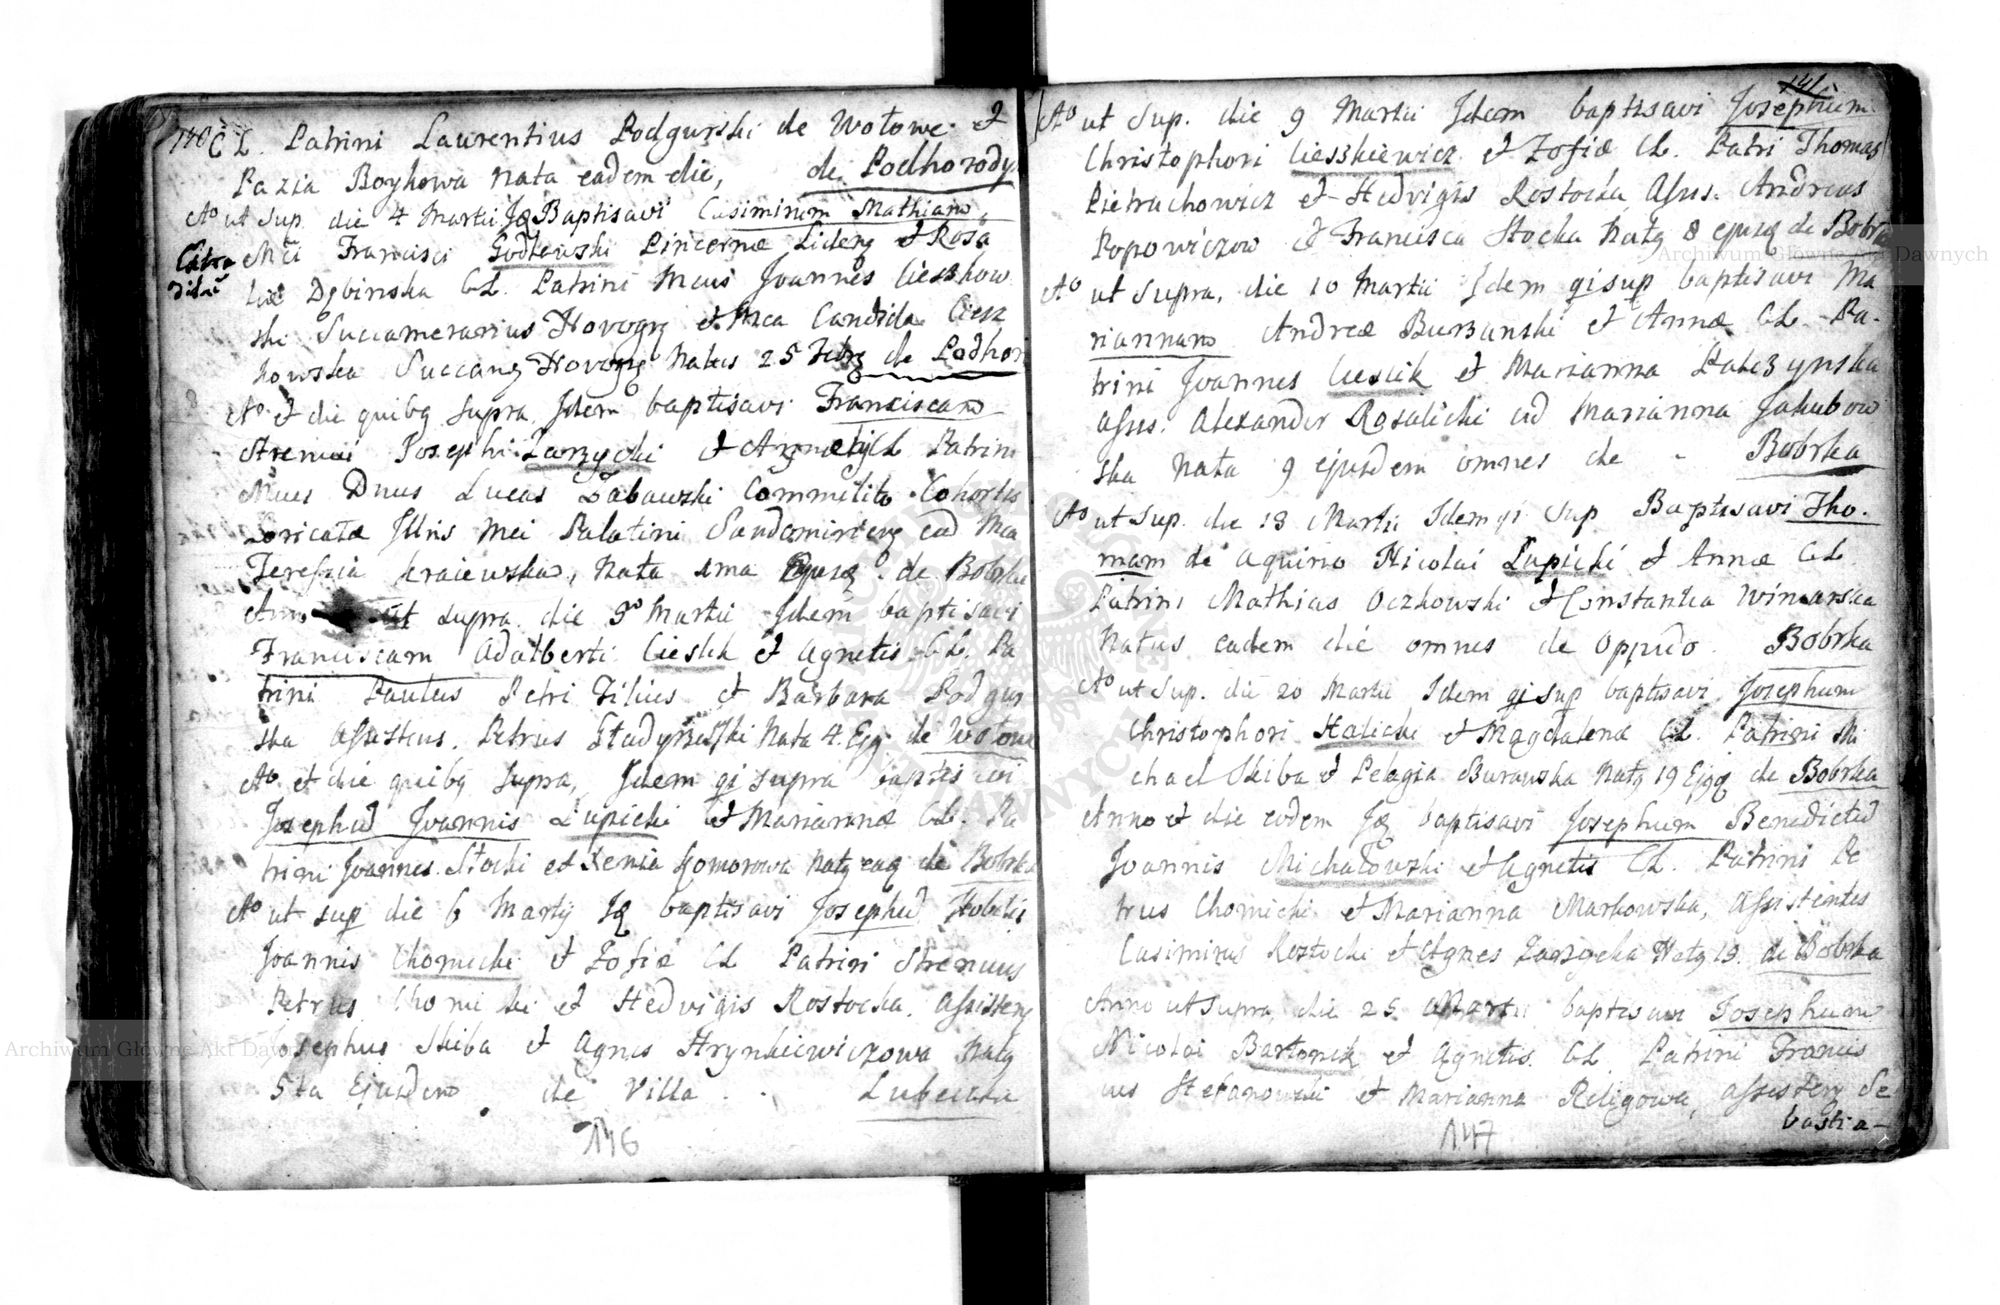 140 C L. Patrini Laurentius Podgurski de Wołowe. et
Pazia Boykowa nata eadem die, de Podhorody
Ao ut Sup. die 4 Martii Jq Baptisavi Casimirum Mathiam
Mci Francisci Godlewski Pincernæ Lideng et Rosa
liæ Dębinska CL. Patrini Mcus Joannes Cieszkow
ski Succamerarius Novogrg et Mca Candida Ciesz
kowska Succang Novogrg Natus 25 Febrg de Podhor
Ao et die quibg supra Idem baptisavi Franciscam
Strenui Josephi Zarzycki et CL Patrini
Mcus Dnus Lucas Commilito Cohortis
Loricatæ Illris Mci Palatini Sandomirieng cud Mca
Teressia kraiewska, Nata 1ma Ejusq de Bobrka
Anno ut supra die 9o Martii Idem baptisavi
Franciscam Adalberti Cieslik et Agnetis CL. Pa
trini Paulus Petri Filius et Barbara Podgur
ska Assistens. Petrus Nata 4. Ejq de Wołowe
Ao et die quibg supra, Idem qi supra baptisavi
Josephud Joannis Łupicki et Mariannæ CL. Pa
trini Joannes Stocki et Xenia Komorowa Natg eaq de Bobrka
Ao ut sup die 6 Martij Iq baptisavi Josephud Nobilis
Joannis Chomicki et Zofiæ CL Patrini Strenuus
Petrus Chomicki et Hedvigis Rostocka. Assisteng
Josephus Skiba et Agnes Hrynkiewiczowa Natg
5ta Ejusdem de Villa Lubeczka
146
141
Ao ut Sup. die 9 Martii Idem baptisavi Josephum
Christophori Cieszkiewicz et Zofiæ CL. Patri Thomas
Pietrachowicz et Hedvigis Rostocka Assis. Andreas
Popowiczow et Francisca Stocka Natg 8 ejusq de Bobrka
Ao ut Supra, die 10 Martii Idem qi sup baptisavi Ma
riannam Andreæ Burzunski et Annæ CL. Pa-
trini Joannes Cieslik et Marianna Halczynska
Assis. Alexander Rosalicki cud Marianna Jakubow
ska Nata 9 ejusdem omnes de - Bobrka
Ao ut Sup. die 18 Martii Idem qi Sup Baptisavi Tho.
mam de Aquino Nicolai Łupicki et Annæ CL.
Patrini Mathias Oczkowski et Constantia Winiarska
Natus eadem die omnes de Oppido Bobrka
Ao ut Sup. die 20 Martii Idem qi sup baptisavi Josephum
Christophori Halicki et Magdalenæ CL. Patrini Mi
chael Skiba et Pelagia Burawska Natg 19 Ejqq de Bobrka
Anno et die eodem Jq baptisavi Josephum Benedictud
Joannis Michałowski et Agnetis CL. Patrini Pe
trus Chomicki et Marianna Markowska, Assistentes
Casimirus Roztocki et Agnes Zarzycka Natg 19. de Bobrka
Anno ut Supra, die 25 Martii baptisavi Josephum
Nicolai Bartonik et Agnetis CL. Patrini Francis
cus Stefanowski et Marianna Religowa, assisteng Se
bastia-
147
Archiwum Główne Akt Dawnych
Archiwum Główne Akt Dawnych